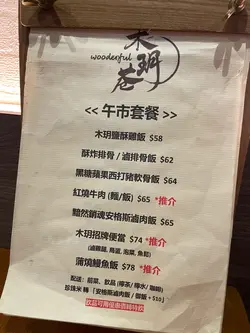 木玥巷
wooderful
<< 午市套餐 >>
木玥鹽酥雞飯 $58
酥炸排骨 / 滷排骨飯 $62
黑糖蘋果西打豬軟骨飯 $64
紅燒牛肉 (麵/飯) $65 *推介
黯然銷魂安格斯滷肉飯 $65
木玥招牌便當 $74 *推介
(滷雞腿, 烏蛋, 泡菜, 魚鬆)
蒲燒鰻魚飯 $78 *推介
配送: 前菜、飲品 (檸茶/ 檸水/ 咖啡)
珍珠米 轉 「安格斯滷肉飯 / 御飯 + $10」
飲品可用優惠價轉特飲